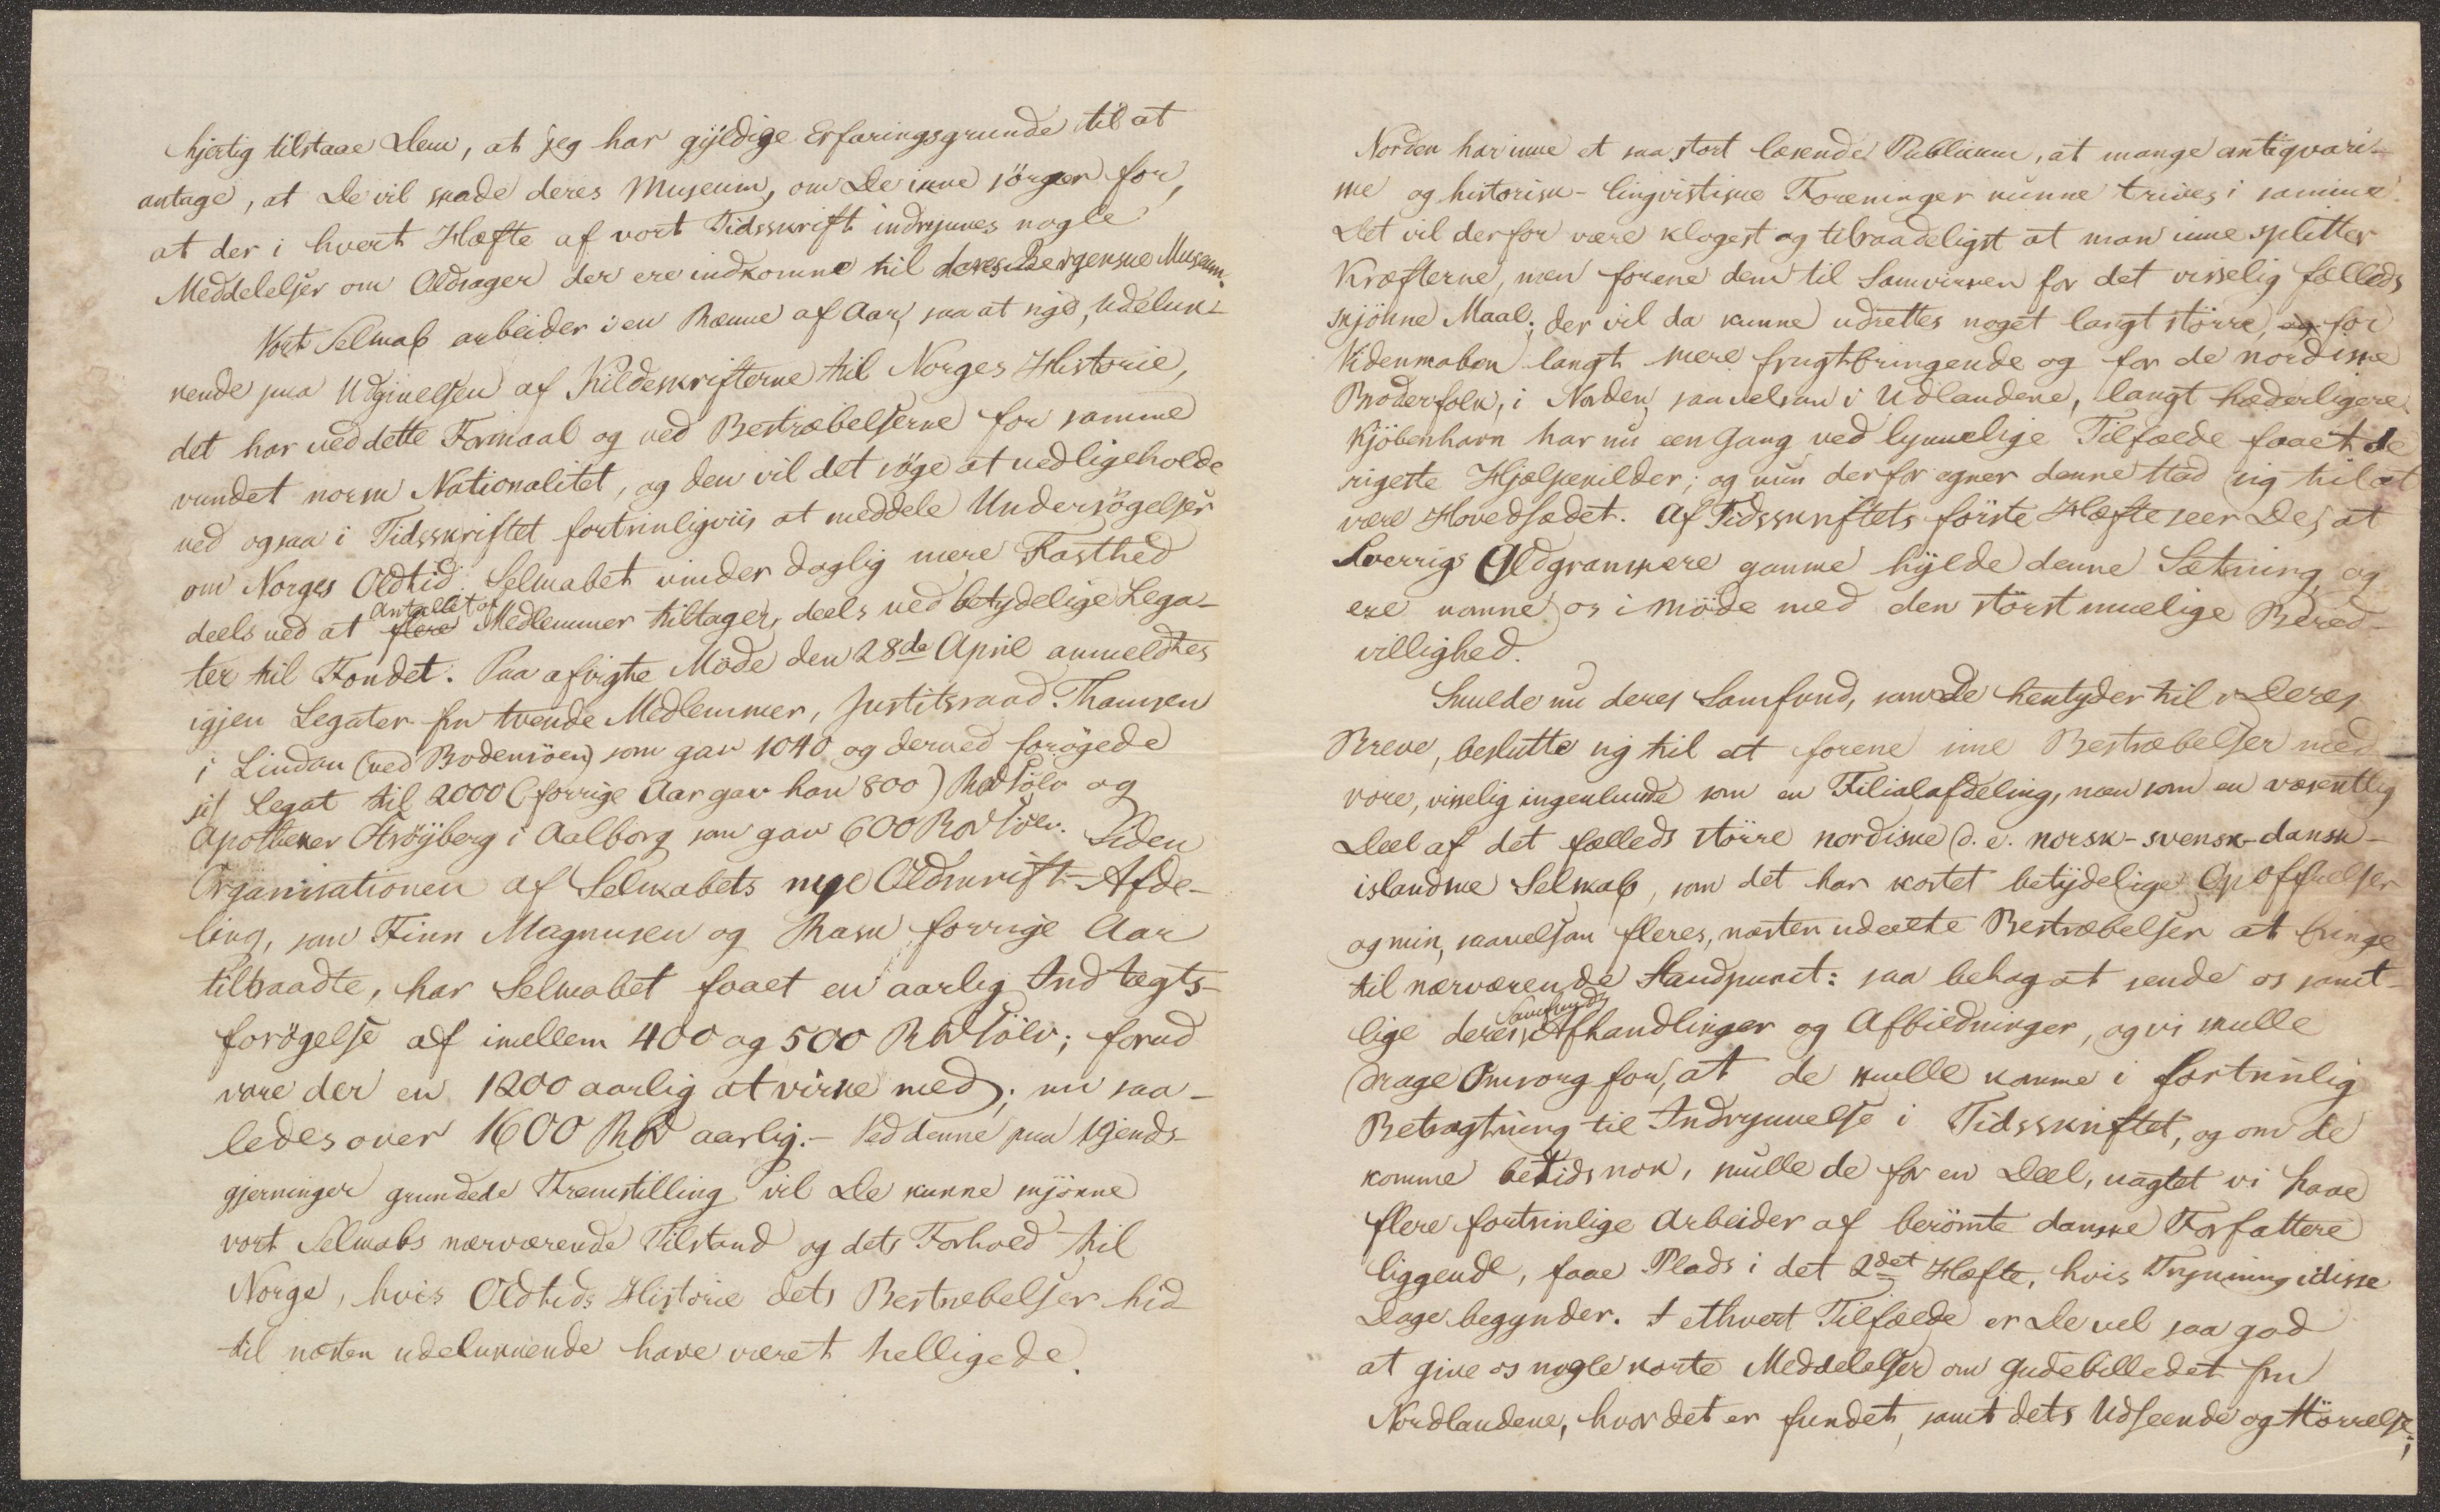 hjertig tilstaae Dem, at jeg har gyldige Erfaringsgrunde til at
antage, at De vil skade deres Museum, om De ikke sörger for,
at der i hvert Hæfte af vort Tidsskrift indrykkes nogle
Meddelelser om Oldsager der ere indkomne til deres Bergenske Museum.
Vort Selskab arbeider i en Række af Aar, saa at sige, udeluk-
kende paa Udgivelsen af Kildeskrifterne til Norges Historie,
det har ved dette Formaal og ved Bestræbelserne for samme
vundet norsk Nationalitet, og den vil det söge at vedligeholde
ved ogsaa i Tidsskriftet fortrinligviis at meddele Undersögelser
om Norges Oldtid. Selskabet vinder daglig mere Fasthed
deels ved at flere Antallet af Medlemmer tiltager, deels ved betydelige Lega-
ter til Fondet. Paa afvigte Möde den 28de April anmeldtes
igjen Legater fra tvende Medlemmer, Justitsraad Thamsen
i Lindau (ved Bodensöen) som gav 1040 og derved forögede
sit Legat til 2000 (forrige Aar gav han 800) Rbd Sölv og
Apotheker Ströyberg i Aalborg som gav 600 Rbd Sölv. Siden
Organisationen af Selskabets nye Oldskrift-Afde-
ling, som Finn Magnusen og Rask forrige Aar
tiltraadte, har Selskabet faaet en aarlig Indtægts-
forögelse af imellem 400 og 500 Rbd Sölv; forud
vare der en 1200 aarlig at virke med; nu saa-
ledes over 1600 Rbd aarlig. - Ved denne paa Kjends-
gjerninger grundede Fremstilling vil De kunne skjönne
vort Selskabs nærværende Tilstand og dets Forhold til
Norge, hvis Oldtids Historie dets Bestræbelser hid-
til næsten udelukkende have været helligede.
Norden har ikke et saa stort læsende Publicum, at mange antiqvari-
ske og historisk-lingvistiske Foreninger kunne trives i samme.
Det vil derfor være klogest og tilraadeligst at man ikke splitter
Kræfterne, men forene dem til Samvirken for det visselig fælleds
skjönne Maal; der vil da kunne udrettes noget langt större, og for
Videnskaben langt mere frugtbringende og for de nordiske
Broderfolk, i Norden saavelsom i Udlandene, langt hæderligere.
Kjöbenhavn har nu een Gang ved lykkelige Tilfælde faaet de
rigeste Hjælpekilder; og kun derfor egner denne Stad sig til at
være Hovedsædet. Af Tidsskriftets förste Hæfte seer De, at
Sverrigs Oldgranskere ganske hylde denne Sætning, og
ere komne os i Möde med den störst muelige Bered-
villighed.
Skulde nu deres Samfund, som De hentyder til i Deres
Breve, beslutte sig til at forene sine Bestræbelser med
vore, visselig ingenlunde som en Filialafdeling, men som en væsentlig
Deel af det fælleds större nordiske (d. e. norsk-svensk-dansk-
islandske Selskab, som det har kostet betydelige Opoffrelser
og min, saavelsom fleres, næsten udeelte Bestræbelser at bringe
til nærværende Standpunct: saa behag at sende os samt-
lige deres Samfunds Afhandlinger og Afbildninger, og vi skulle
drage Omsorg for, at de skulle komme i fortrinlig
Betragtning til Indrykkelse i Tidsskriftet, og om de
komme betids nok, skulle de for en Deel, uagtet vi have
flere fortrinlige Arbeider af berömte danske Forfattere
liggende, faae Plads i det 2det Hæfte, hvis Trykning i disse
Dage begynder. I ethvert Tilfælde er De vel saa god
at give os nogle korte Meddelelser om Gudebilledet fra
Nordlandene, hvor det er fundet, samt dets Udseende og Störrelse;